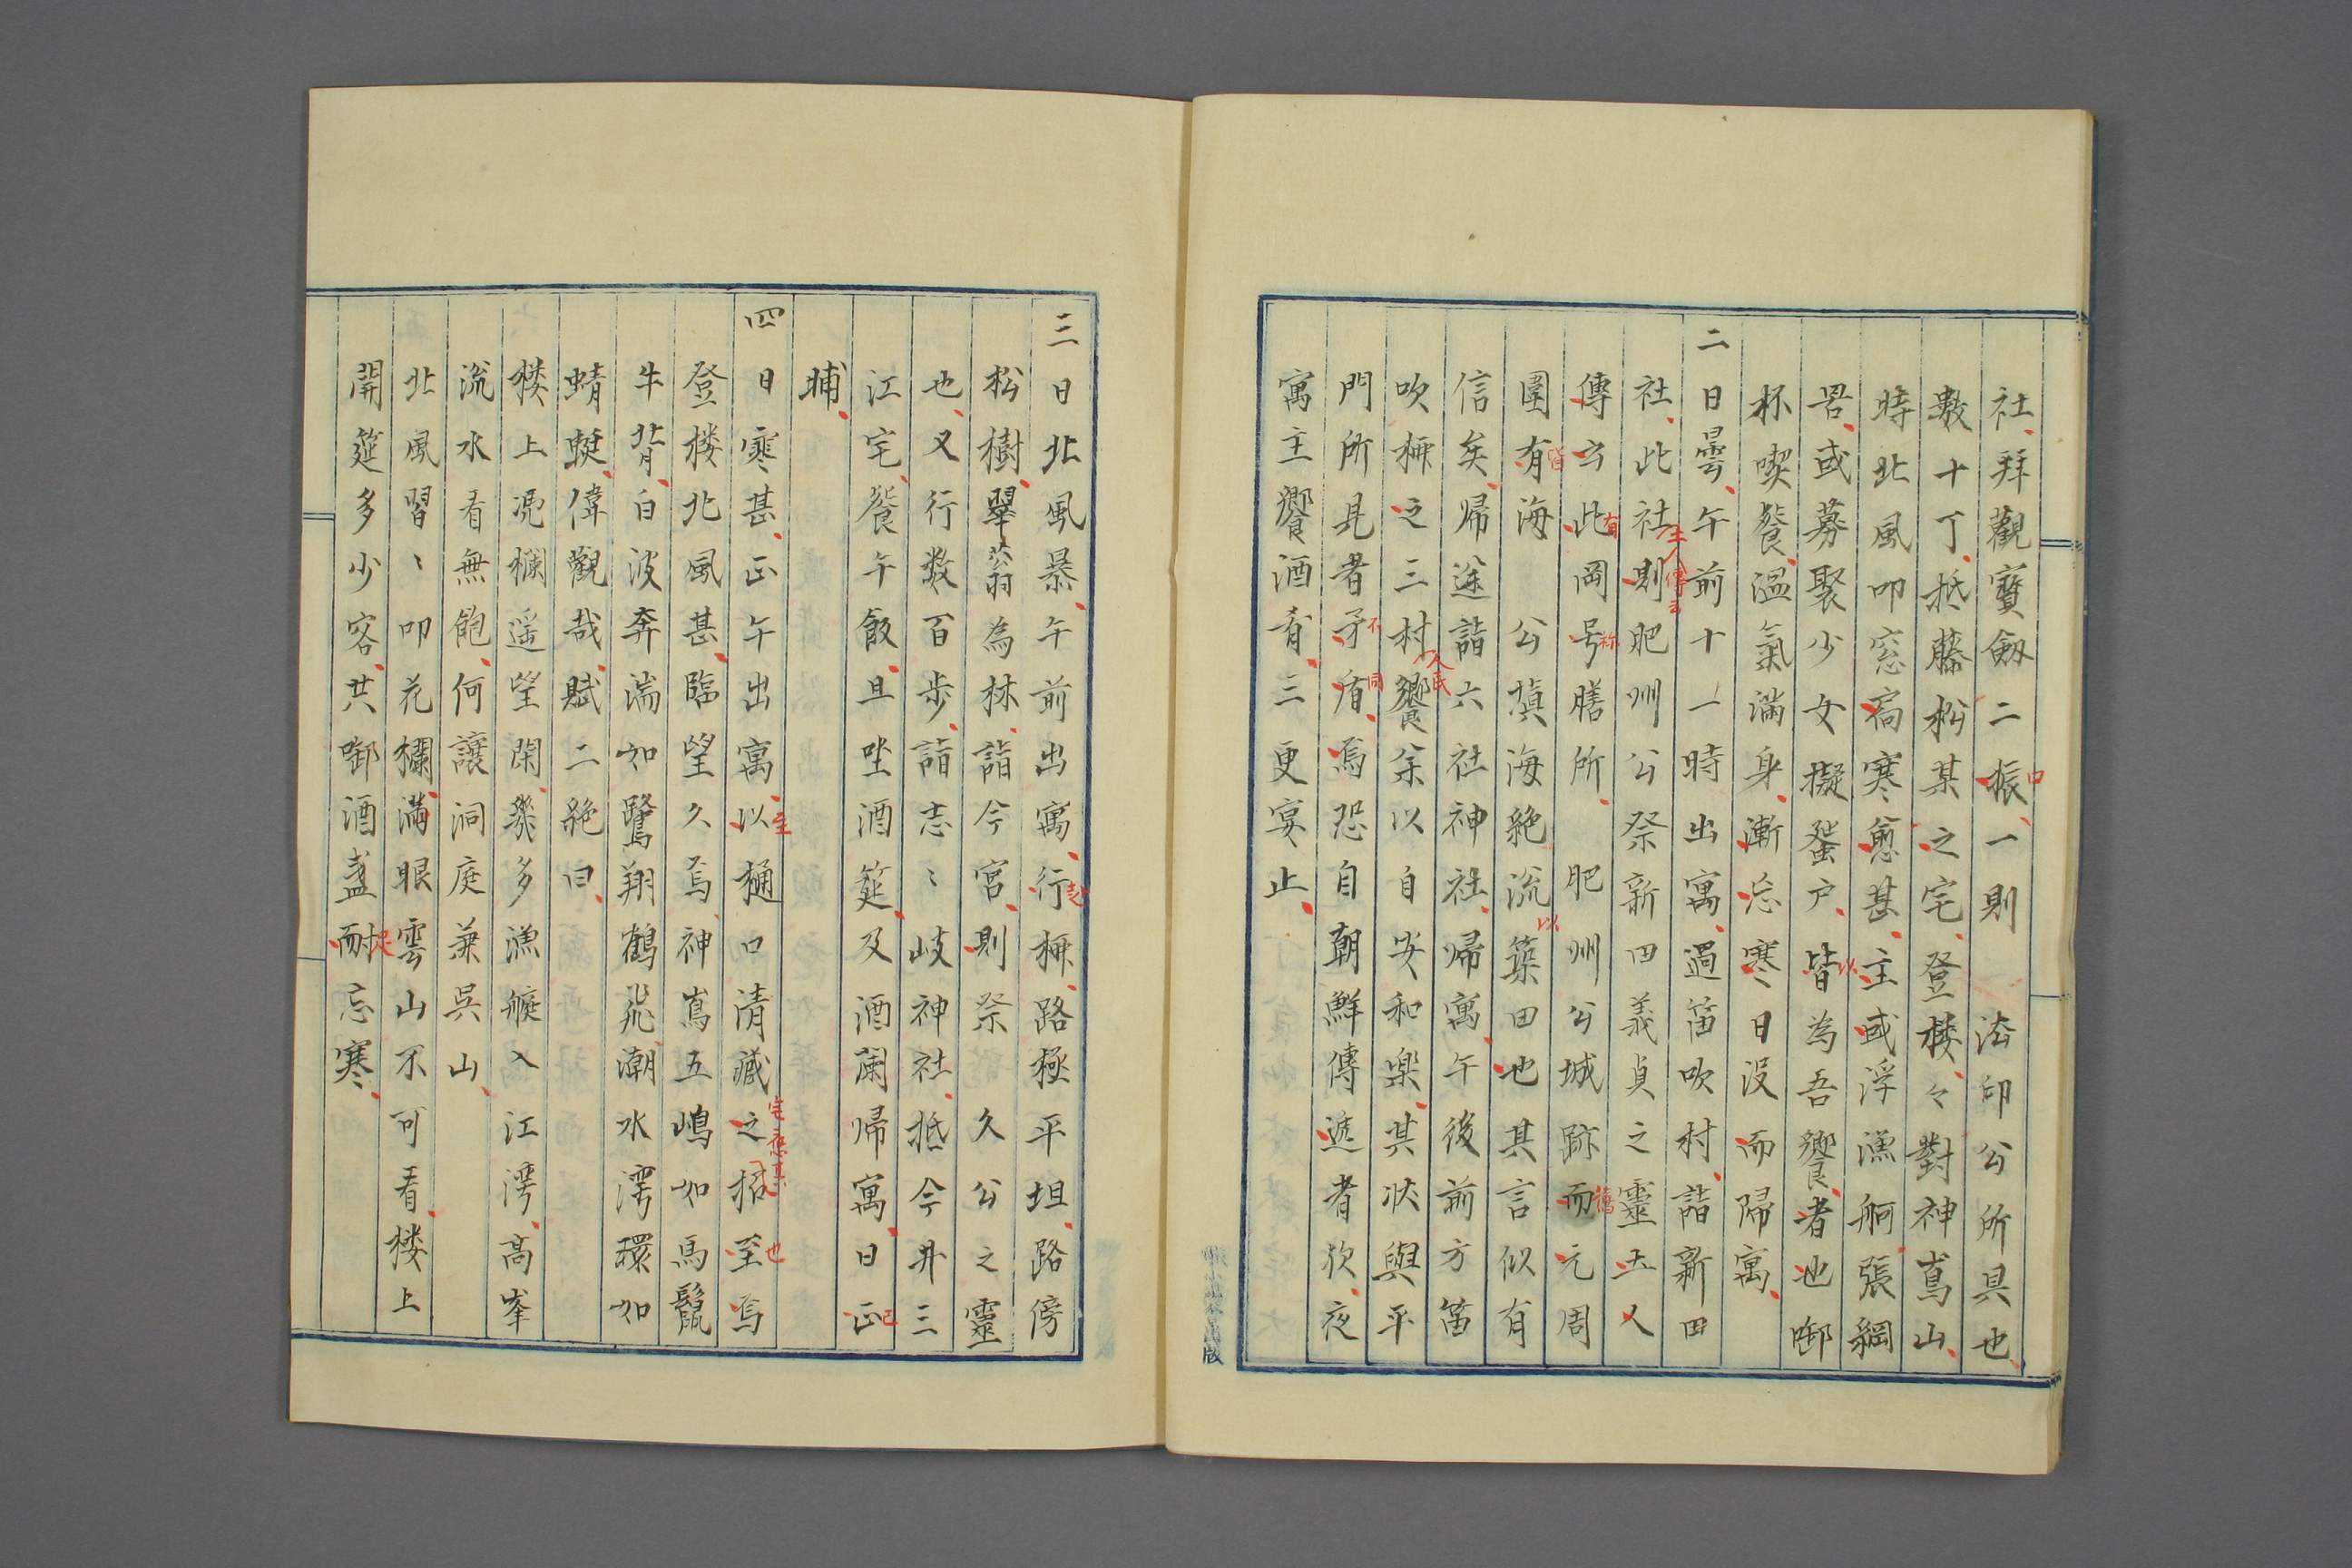 社拜觀寶劔二振一則　法印公所具也
數十丁抵藤松某之宅登楼々對神嶌山
時北風叩窓寤寒愈甚主或浮漁舸張綱
罟或募聚少女擬蜑户皆為吾饗者也啣
杯喫餐温氣満身漸忘寒日没而歸寓
二日曇午前十一時出寓過笛吹村詣新田
社此社則肥州公祭新田義貞之靈土人
傳云此岡号膳所　肥州公城跡而元周
圍有海　公塡海絶流築田也其言似有
信矣帰途詣六社神社帰寓午後前方笛
吹柳之三村饗余以自安和楽其状與平
門所見者矛盾焉恐自朝鮮傳遞者欤夜
寓主饗酒肴三更宴止
三日北風暴午前出寓行柳路極平坦路傍
松樹翠蓊為林詣今宮則祭　久公之靈
也又行数百歩詣志々岐神社抵今井三
江宅餐午飯且坐酒筵及酒闌帰寓日正
晡
四日寒甚正午出寓以樋口清藏之招至焉
登楼北風甚臨望久焉神嶌五嶋如馬鬣
牛背白波奔湍如鷺翔鶴飛潮水湾環如
蜻蜓偉觀哉賦二絶曰
楼上凭欄遥望閑幾多漁艇入江湾高峯
流水看無飽何讓洞庭兼呉山
北風習々叩花欄満眼雲山不可看楼上
開筵多少客共啣酒盞而忘寒